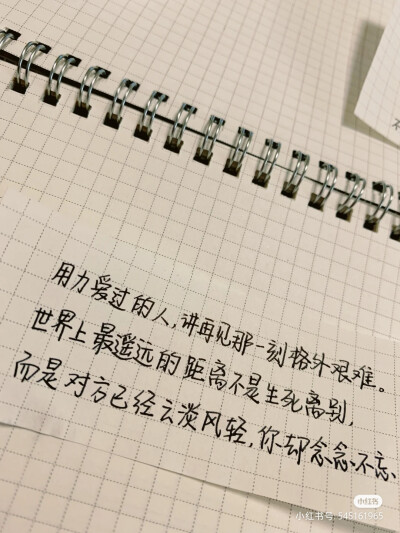 用力爱过的人,讲再见那一刻格外艰难。
世界上最遥远的距离不是生死离别,
而是对方已经云淡风轻,你却念念不忘
小红书
小红书号: 545161965